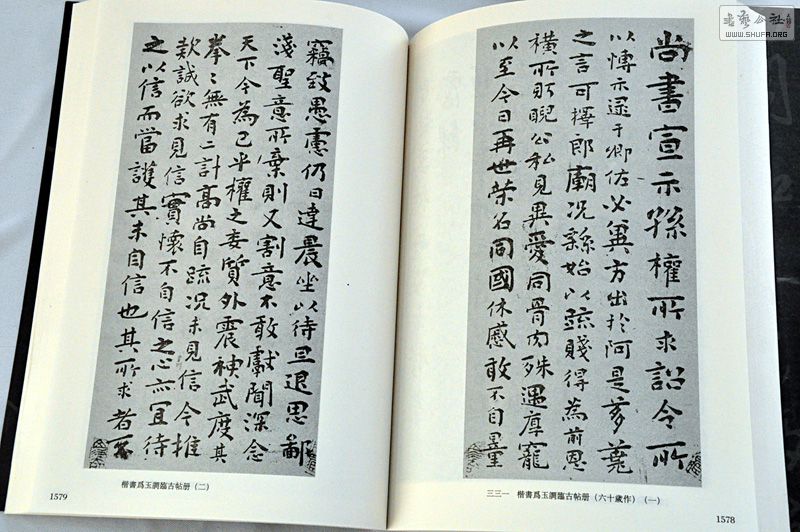 尚書宣示孫權所求詔令所
以博示逮于卿佐必冀方出於阿是芻蕘
之言可擇郎廟况繇始以疏賤得為前恩
橫所盻睨公私見異愛同骨肉殊遇厚寵
以至今日再世榮名同國休慼敢不自量
三三一 楷書爲玉潤臨古帖册（六十歲作）（一）
1578
竊致愚慮仍日達晨坐以待旦退思鄙
淺聖意所棄則又割意不敢獻聞深念
天下今為已平權之委質外震神武度其
拳〻無有二計高尚自疏况未見信今推
款誠欲求見信實懷不自信之心亦宜待
之以信而當護其未自信也其所求者不
楷書爲玉潤臨古帖册（二）
1579
WWW.SHUFA.ORG